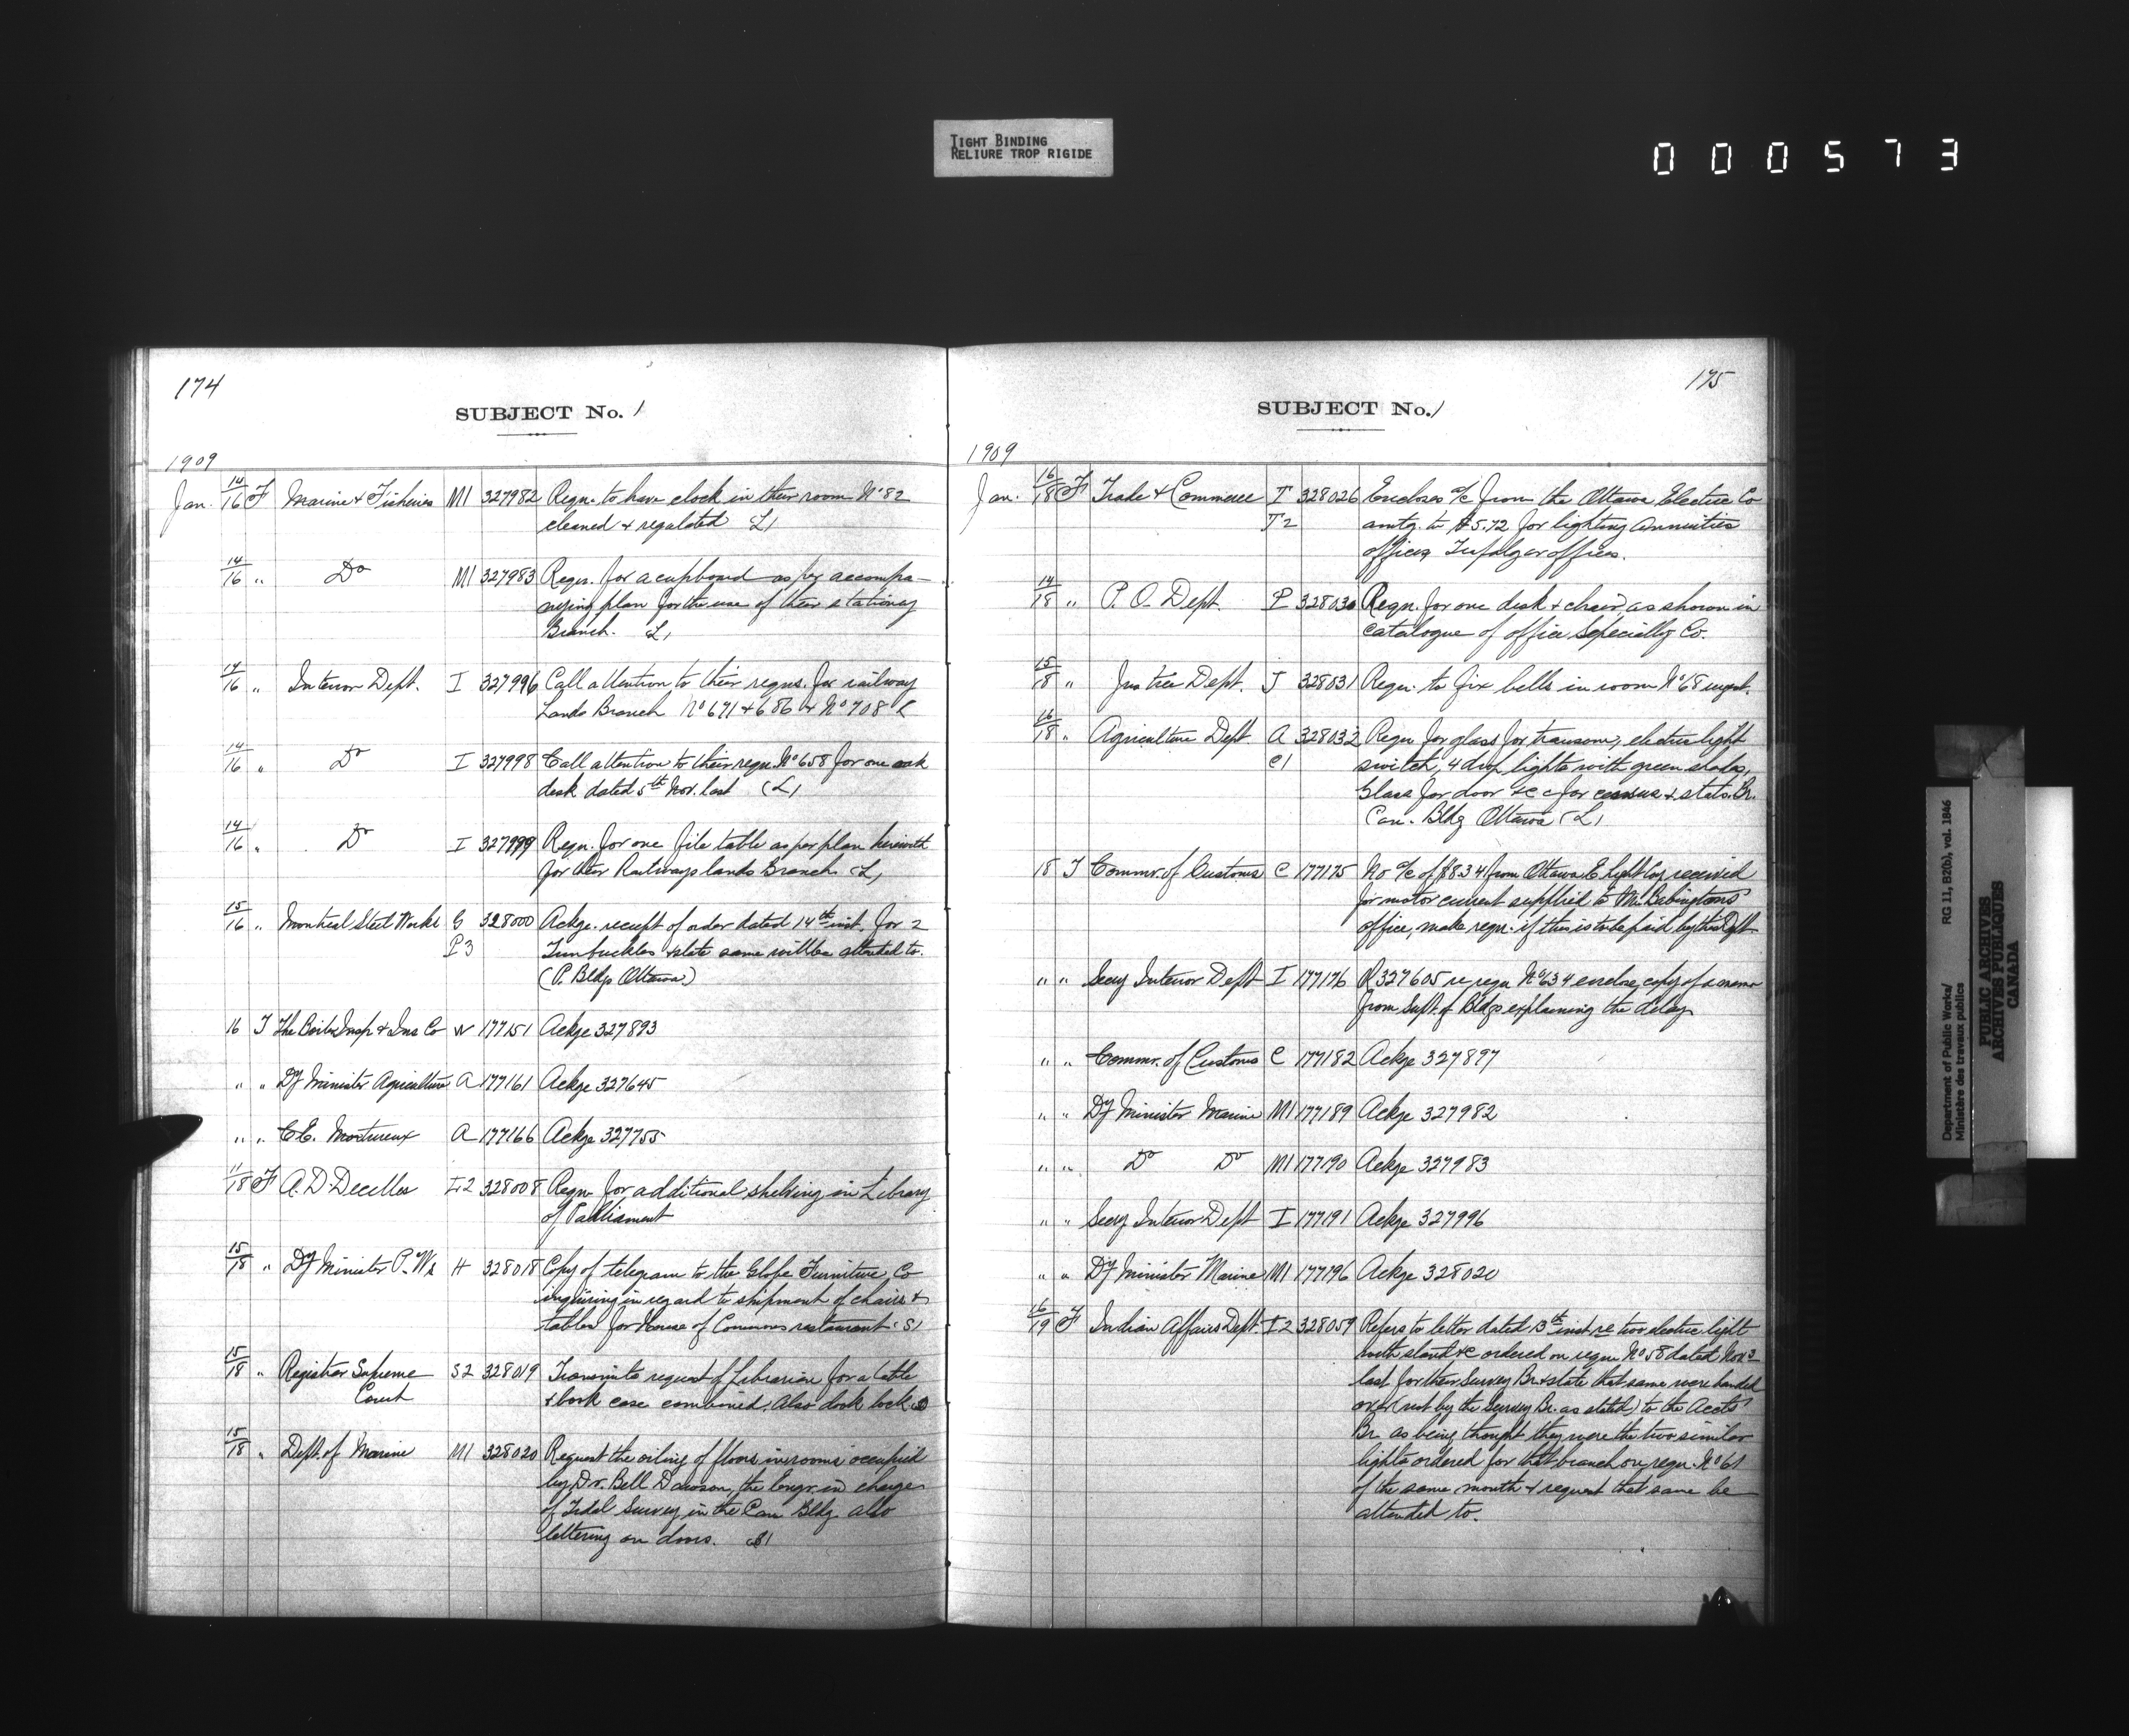 TIGHT BINDING
RELIURE TROP RIGIDE
000573
174
SUBJECT No. 1
1909
Jan. 14/16 F Marine & Fisheries M1 327982 Reqn. to have clock in their room No 82
cleaned & regulated L1
14/16 " Do M1 327983 Reqn. for a cupboard as per accompa-
nying plan for the use of their stationery
Branch. L1
14/16 " Interior Dept. I 327996 Call attention to their reqns. for railway
Lands Branch No 671 & 686 & No 708 L
14/16 " Do I 327998 Call attention to their reqn. No 658 for one oak
desk dated 5th Nov. last (L1
14/16 " Do I 327999 Reqn. for one file table as per plan herewith
for their Railways lands Branch (L1
15/16 " Montreal Steel Works G 328000 Ackge. receipt of order dated 14th inst. for 2
P3 Turnbuckles & state same will be attended to.
(P. Bldgs Ottawa)
16 T The Boiler Insp & Ins Co W 177151 Ackge 327893
" " Dy Minister Agriculture A 177161 Ackge 327645
" " C.E. Mortureux A 177166 Ackge 327755
11/18 F A. D. Decelles L2 328008 Reqn. for additional shelving in Library
of Parliament
15/18 " Dy Minister P. Ws H 328018 Copy of telegram to the Globe Furniture Co
inquiring in regard to shipment of chairs &
tables for House of Commons restaurant (S1
15/18 " Registrar Supreme S2 328019 Transmits request of Librarian for a table
Court & book case combined. Also
15/18 " Dept. of Marine M1 328020 Request the oiling of floors in rooms occupied
by Dr. Bell Dawson, the Engr. in charge
of Tidal Survey in the Can Bldg. also
lettering on doors. S1
175
SUBJECT No. 1
1909
Jan. 16/18 F Trade & Commerce T 328026 Encloses a/c from the Ottawa Electric Co
T2 amtg. to $5.72 for lighting Annuities
offices, Trafalgar offices.
14/18 " P. O. Dept. P 328030 Reqn. for one desk & chair as shown in
catalogue of office Specialty Co.
15/18 " Justice Dept. J 328031 Reqn. to fix bells in room No 68 urgent.
16/18 " Agriculture Dept. A 328032 Reqn. for glass for transom, electric light
C1 switch, 4 drop lights with green shades,
Glass for door &c &c for census & stats. Br.
Can. Bldg Ottawa (L1
18 T Commr. of Customs C 177175 No a/c of $8.34 from Ottawa E Light Coy received
for motor current supplied to Mr. Babington's
office, make reqn. if this is to be paid by this Dept
" " Secy Interior Dept I 177176 R 327605 re reqn No 634 enclose copy of a memo
from Supt. of Bldgs explaining the delay
" " Commr. of Customs C 177182 Ackge 327897
" " Dy Minister Marine M1 177189 Ackge 327982
" " Do Do M1 177190 Ackge 327983
" " Secy Interior Dept I 177191 Ackge 327996
" " Dy Minister Marine M1 177196 Ackge 328020
16/19 F Indian Affairs Dept. I2 328059 Refers to letter dated 13th inst re two electric light
with stand &c ordered on reqn No 58 dated Nov 3
last for their Survey Br. & state that same were handed
over (not by the Survey Br. as stated) to the Accts'
Br. as being thought they were the two similar
lights ordered for that branch on reqn. No 61
of the same month & request that same be
attended to.
Department of Public Works/
Ministère des travaux publics
RG 11, B2(b), vol. 1846
PUBLIC ARCHIVES
ARCHIVES PUBLIQUES
CANADA